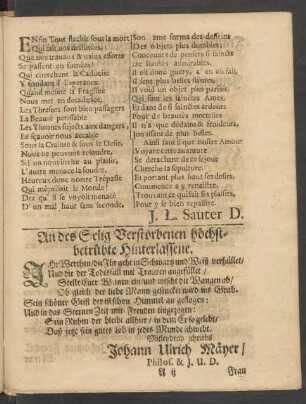 ENfin Tout flechit sous la mort
Qui fait nos destinées,
Que nos travaux & nos efforts
Se passent en fumées!
Qui cherchent la Caducité
Y fondant l'Esperance
Quand mesme la Fragilité
Nous met en decadence,
Les Thresors sont bien passagers
La Beauté perissable
Les Thrones sujets aux dangers,
Le sçavoir nous accable
Sous la Crainte & sous le Desir,
Nous ne peuvent resoudre,
Si l'un nous invite au plaisir,
L'autre menace la foudre,
Heureux donc nostre Trépassé
Qui méprisoit le Monde!
Dez qu'il se voyoit menacé
D'un mal haut sans seconde,
Son ame forma des desseins
Des objets plus durables;
Concevant de pensers si saincts
Les Saincts admirables.
Il oit donc guerry, & en est fait,
Il sent plus belles flames,
Il void un objet plus parfait,
Qui sont les sainctes Ames.
Et dans de si sainctes ardeurs
Pour de beautés mortelles
Il n'a que dédains & froideurs,
Jouissant de plus belles.
Ainsi faut il que nostre Amour
Voyant cette avanture
Se detachant de ce sejour
Cherche sa sepulture.
Et portant plus haut ses desirs,
Commence à y renaistre,
Trouvant ce qui fait ses plaisirs,
Pour y se bien repaistre.
J. L. Sauter D.
An des Selig Verstorbenen höchst-
betrübte Hinterlassene.
Ihr Werthen/die Ihr geht in Schwartz und Weiß verhüllet/
Und die der Todesfall mit Trauren angefüllet/
Stellt Eure Wainen ein/und wischt die Wangen ab/
Ob gleich der liebe Mann gesencket wird ins Grab.
Sein schöner Geist der ist schon Himmel an geflogen:
Und in das Sternen Zelt mit Freuden eingezogen:
Sein Ruhm der bleibt allhier/in dem Er so gelebt/
Daß jetzt sein gutes Lob in jedes Munde schwebt.
Mitleydend schriebs
Johann Ulrich Mäyer/
Philos. & J. U. D.
A ij
Frau